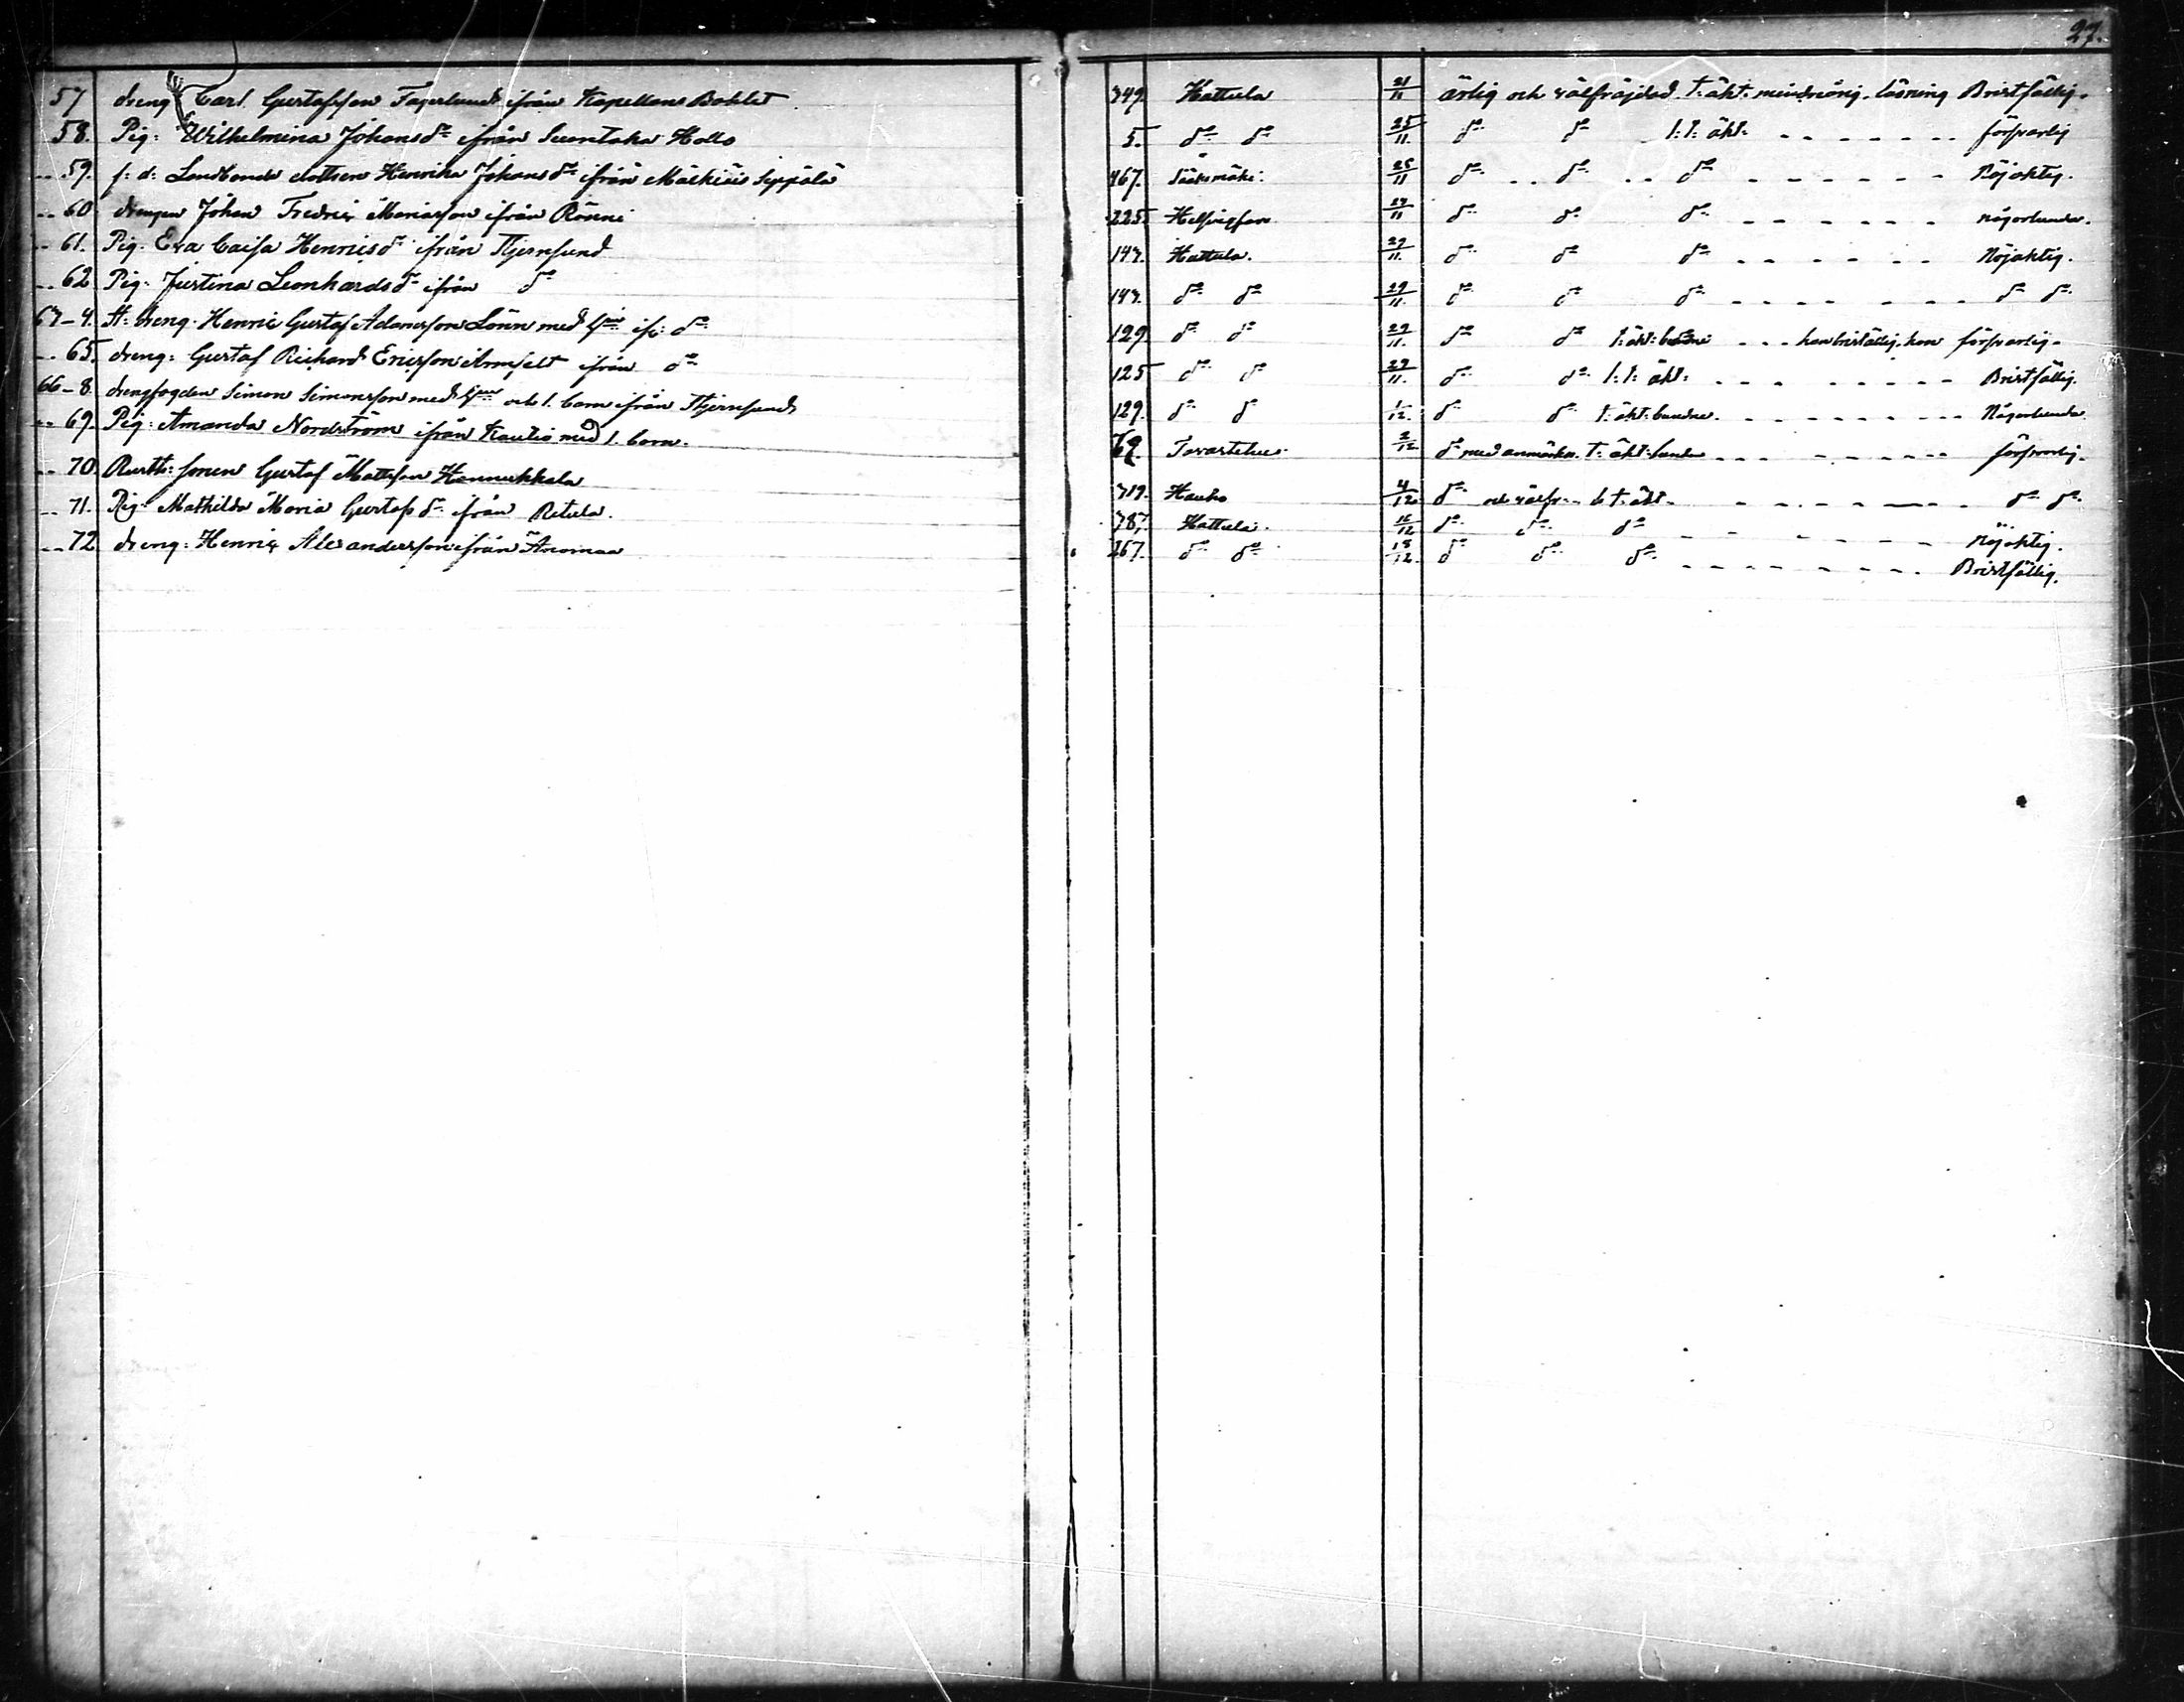 27.
57 dreng Carl Gustafsson Fagerlund ifrån Kapellans Bohlet 349. Hattula 21/11 ärlig och välfräjdad t: äkt: minderårig. läsning Bristfällig.
58. Pig: Wilhelmina Johansdr ifrån Suontaka Hollo 5. do do 25/11. do do l: t: äkt: försvarlig
59. f: d: Landbonde dottren Henrika Johansdr ifrån Mälkiäis Seppälä 467. Sääksmäki. 25/11 do do do Nöjaktig.
60 drengen Johan Fredric Mariasson ifrån Rönni 225. Helsingfors 27/11 do do do någorlunda.
61. Pig. Eva Caisa Henricsdr ifrån Stjernsund 147. Hattula. 29/11. do do do Nöjaktig.
62 Pig. Justina Leonhardsdr ifrån do 147. do do 29/11. do do do do do
63-4. St: dreng. Henric Gustaf Adamsson Lönn med hu ifr: do 129. do do 29/11. do do t: äkt: bundne han bristfällig, hon försvarlig.
65. dreng: Gustaf Richard Ericsson Armfelt ifrån do 125 do do 29/11. do do l: t: äkt: Bristfällig.
66-8 drengfogden Simon Simonsson med hu och 1. barn ifrån Stjernsund 129. do do 1/12. do do t: äkt: bundne. Någorlunda
69. Pig: Amanda Nordström ifrån Rautio med 1. barn. Tavastehus 2/12 do med anmärkn. t: äkt: försvarlig.
70 Rusth: sonen Gustaf Mattsson Hannukkala 319. Hauho 4/12. do och välfr. l: t: äkt. do do
71. Pig. Mathilda Maria Gustafsdr ifrån Retula. 387. Hattula. 16/12 do do do Nöjaktig.
72 dreng: Henric Alexandersson ifrån Anomaa 267. do do 18/12. do do do Bristfällig.